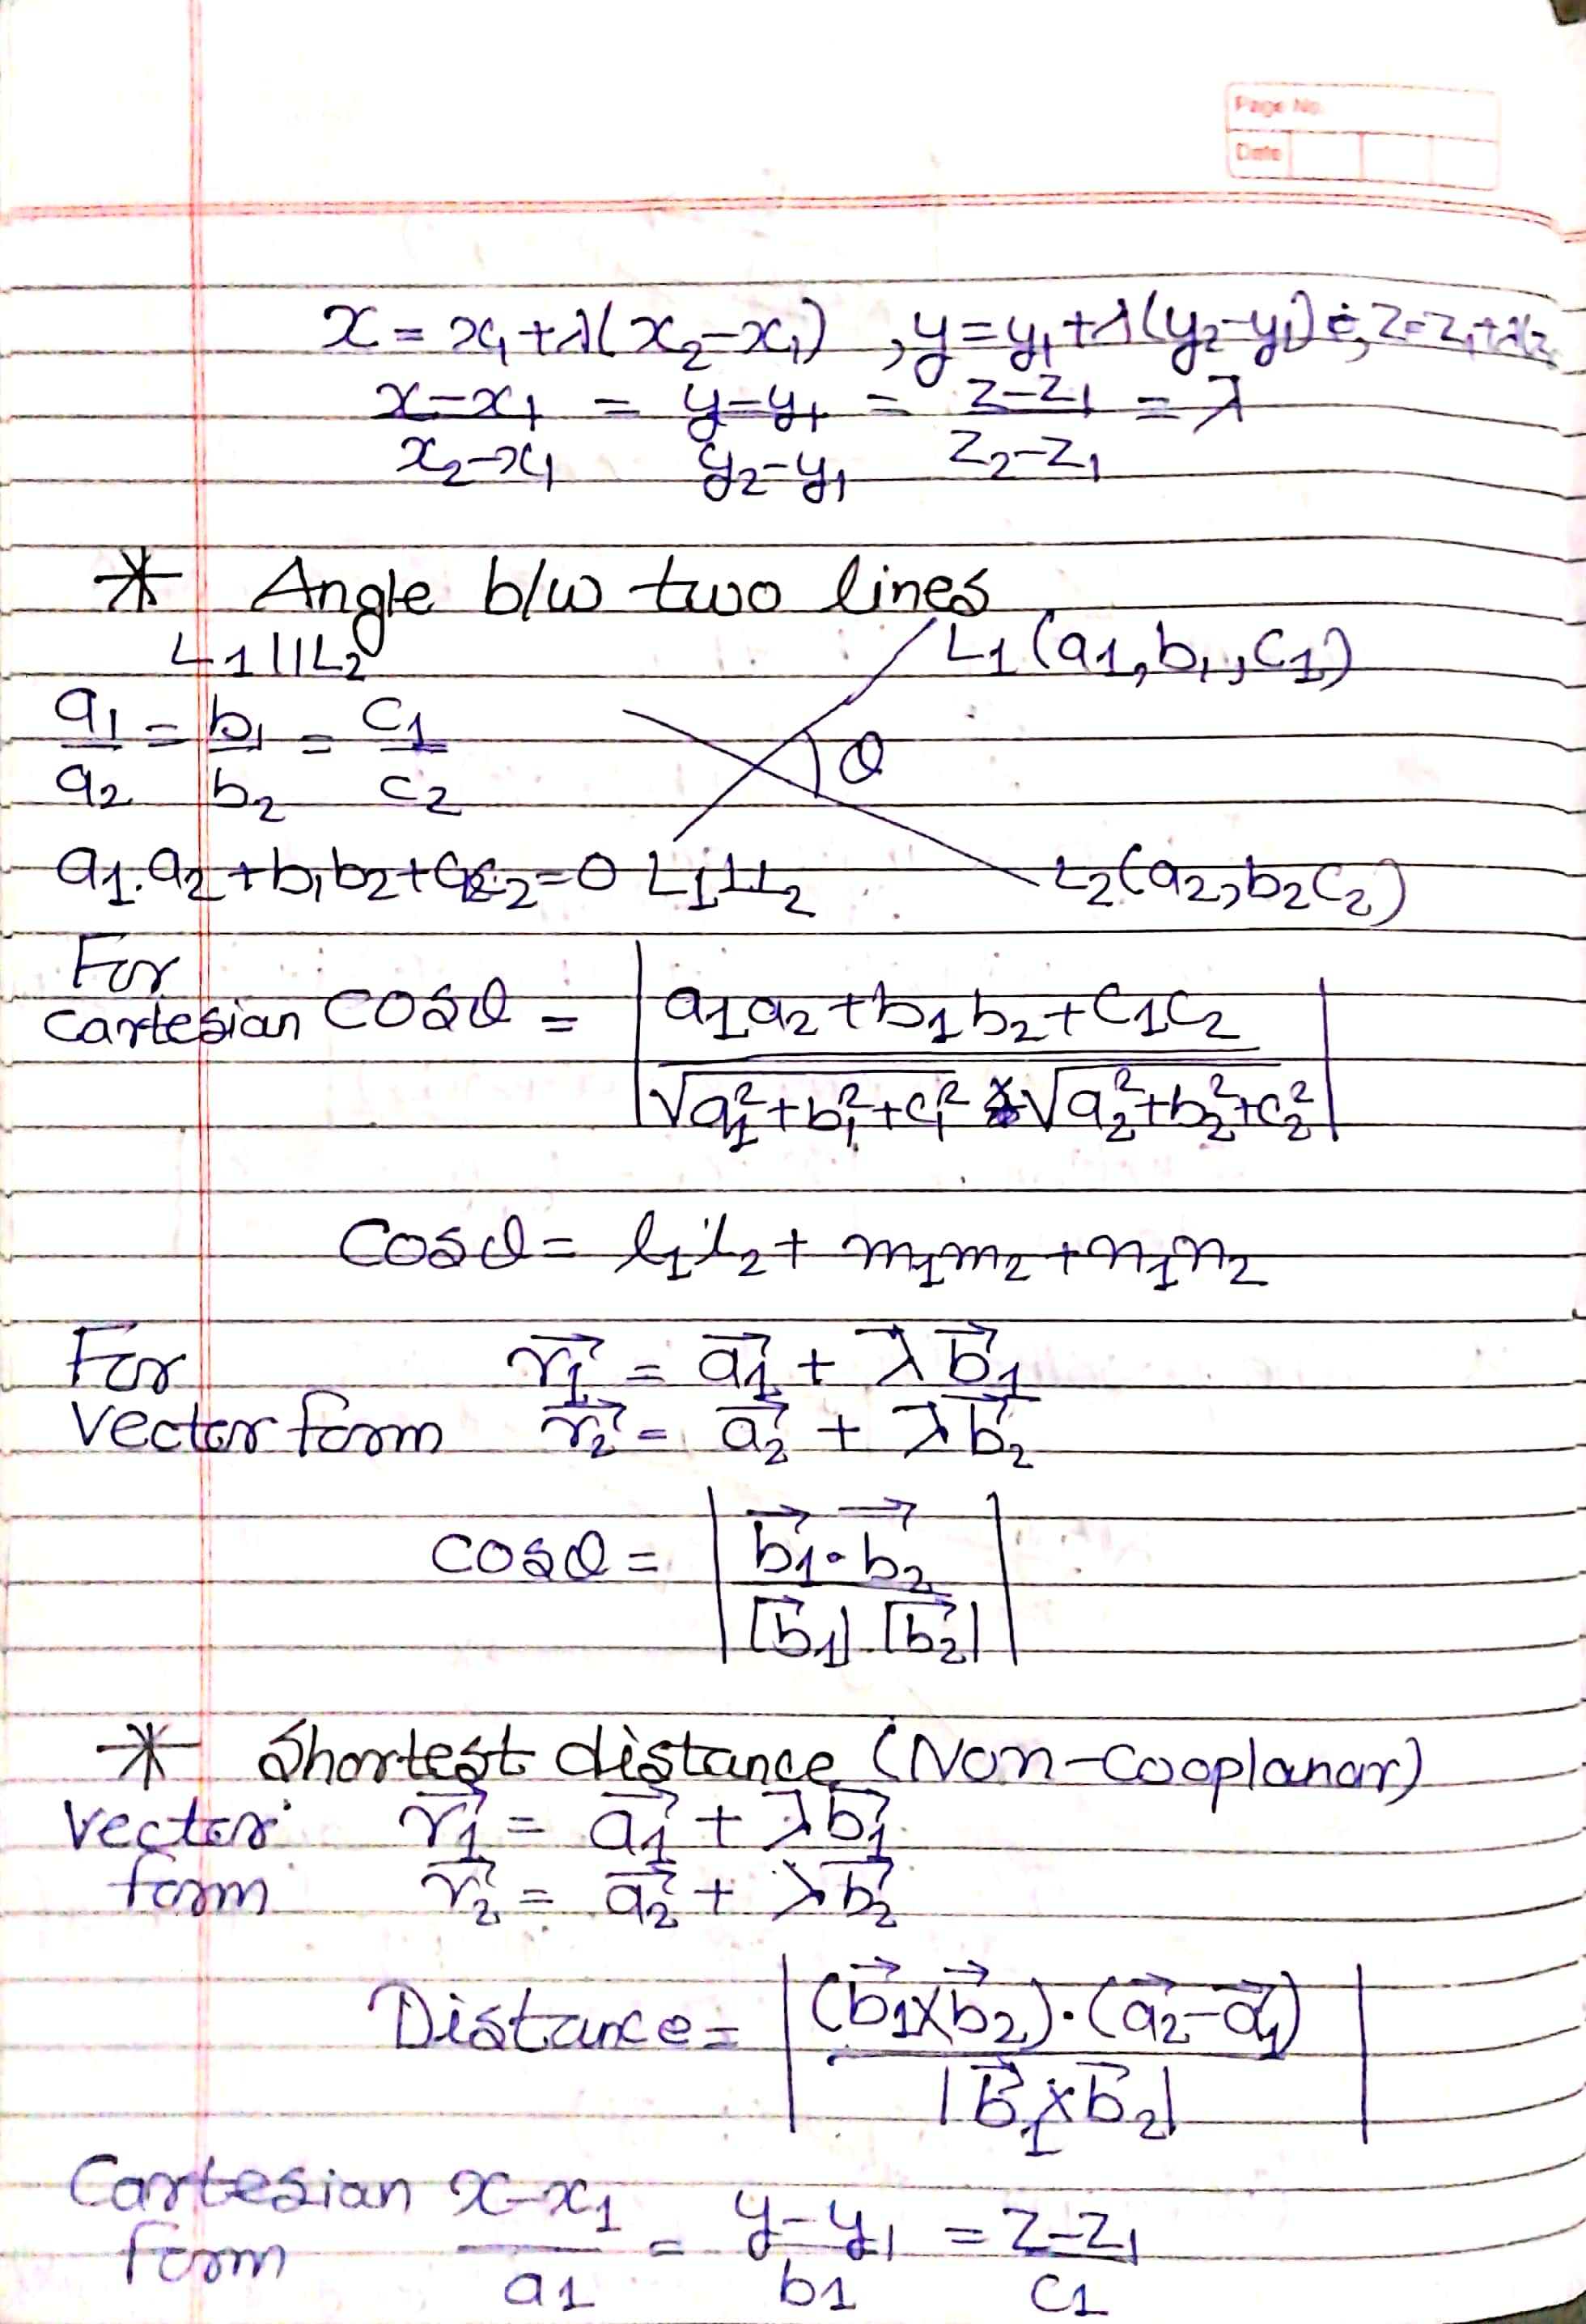 Page No.
Date
x = x₁ + λ(x₂-x₁) , y = y₁ + λ(y₂-y₁) , z = z₁ + λ(z₂
x-x₁/x₂-x₁ = y-y₁/y₂-y₁ = z-z₁/z₂-z₁ = λ
* Angle b/w two lines
L₁ || L₂
L₁(a₁, b₁, c₁)
a₁/a₂ = b₁/b₂ = c₁/c₂
θ
a₁.a₂ + b₁b₂ + c₁c₂ = 0 L₁⊥L₂
L₂(a₂, b₂ c₂)
For
Cartesian cosθ = | a₁a₂ + b₁b₂ + c₁c₂ / √a₁²+b₁²+c₁² × √a₂²+b₂²+c₂² |
Cosθ = l₁l₂ + m₁m₂ + n₁n₂
For r₁⃗ = a₁⃗ + λb₁⃗
Vector form r₂⃗ = a₂⃗ + λb₂⃗
cosθ = | b₁⃗.b₂⃗ / |b₁⃗| |b₂⃗| |
* Shortest distance (Non-Cooplanar)
Vector r₁⃗ = a₁⃗ + λb₁⃗
form r₂⃗ = a₂⃗ + λb₂⃗
Distance = | (b₁⃗×b₂⃗).(a₂⃗-a₁⃗) / |b₁⃗×b₂⃗| |
Cartesian form x-x₁/a₁ = y-y₁/b₁ = z-z₁/c₁